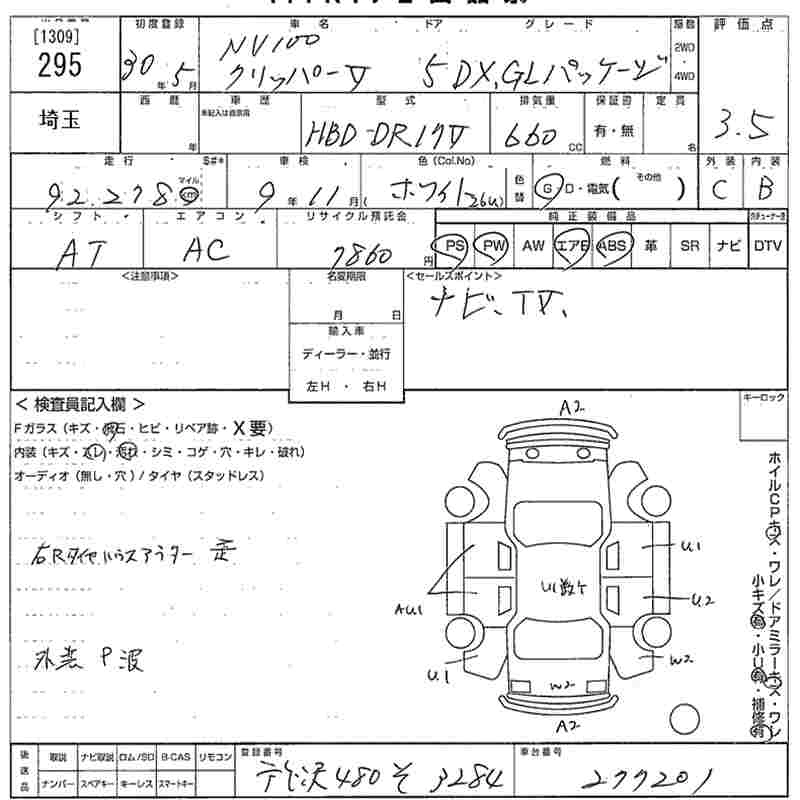 [1309]
295
初度登録
車名
ドア
グレード
評価点
30年5月
NV100
クリッパーV
5
DX,GLパッケージ
2WD
4WD
3.5
埼玉
西暦
年
車歴
未記入は自家用
型式
HBD-DR17V
排気量
660
CC
保証書
有・無
定員
名
走行
S#*
92.278
マイル
km
車検
9年11月
色(Col.No)
ホワイト(26U)
色替
燃料
G・D・電気(その他)
外装
C
内装
B
シフト
AT
エアコン
AC
リサイクル預託金
7860円
純正装備品
PS
PW
AW
エアB
ABS
革
SR
ナビ
DTV
<注意事項>
名変期限
月 日
輸入車
ディーラー・並行
左H・右H
<セールスポイント>
ナビ、TV、
<検査員記入欄>
Fガラス(キズ・飛石・ヒビ・リペア跡・X要)
内装(キズ・スレ・汚れ・シミ・コゲ・穴・キレ・破れ)
オーディオ(無し・穴)/タイヤ(スタッドレス)
右Rタイヤハウスアウター 歪
外装 P 波
キーロック
A2
U1
U2
AU1
U1数ケ
U.1
W2
W2
A2
ホイルCPキズ・ワレ/ドアミラーキズ・ワレ
小キズ有・小U有・補修有
後送品
取説
ナビ取説
ロム/SD
B-CAS
リモコン
ナンバー
スペアキー
キーレス
スマートキー
登録番号
所沢 480 そ 3284
車台番号
277201